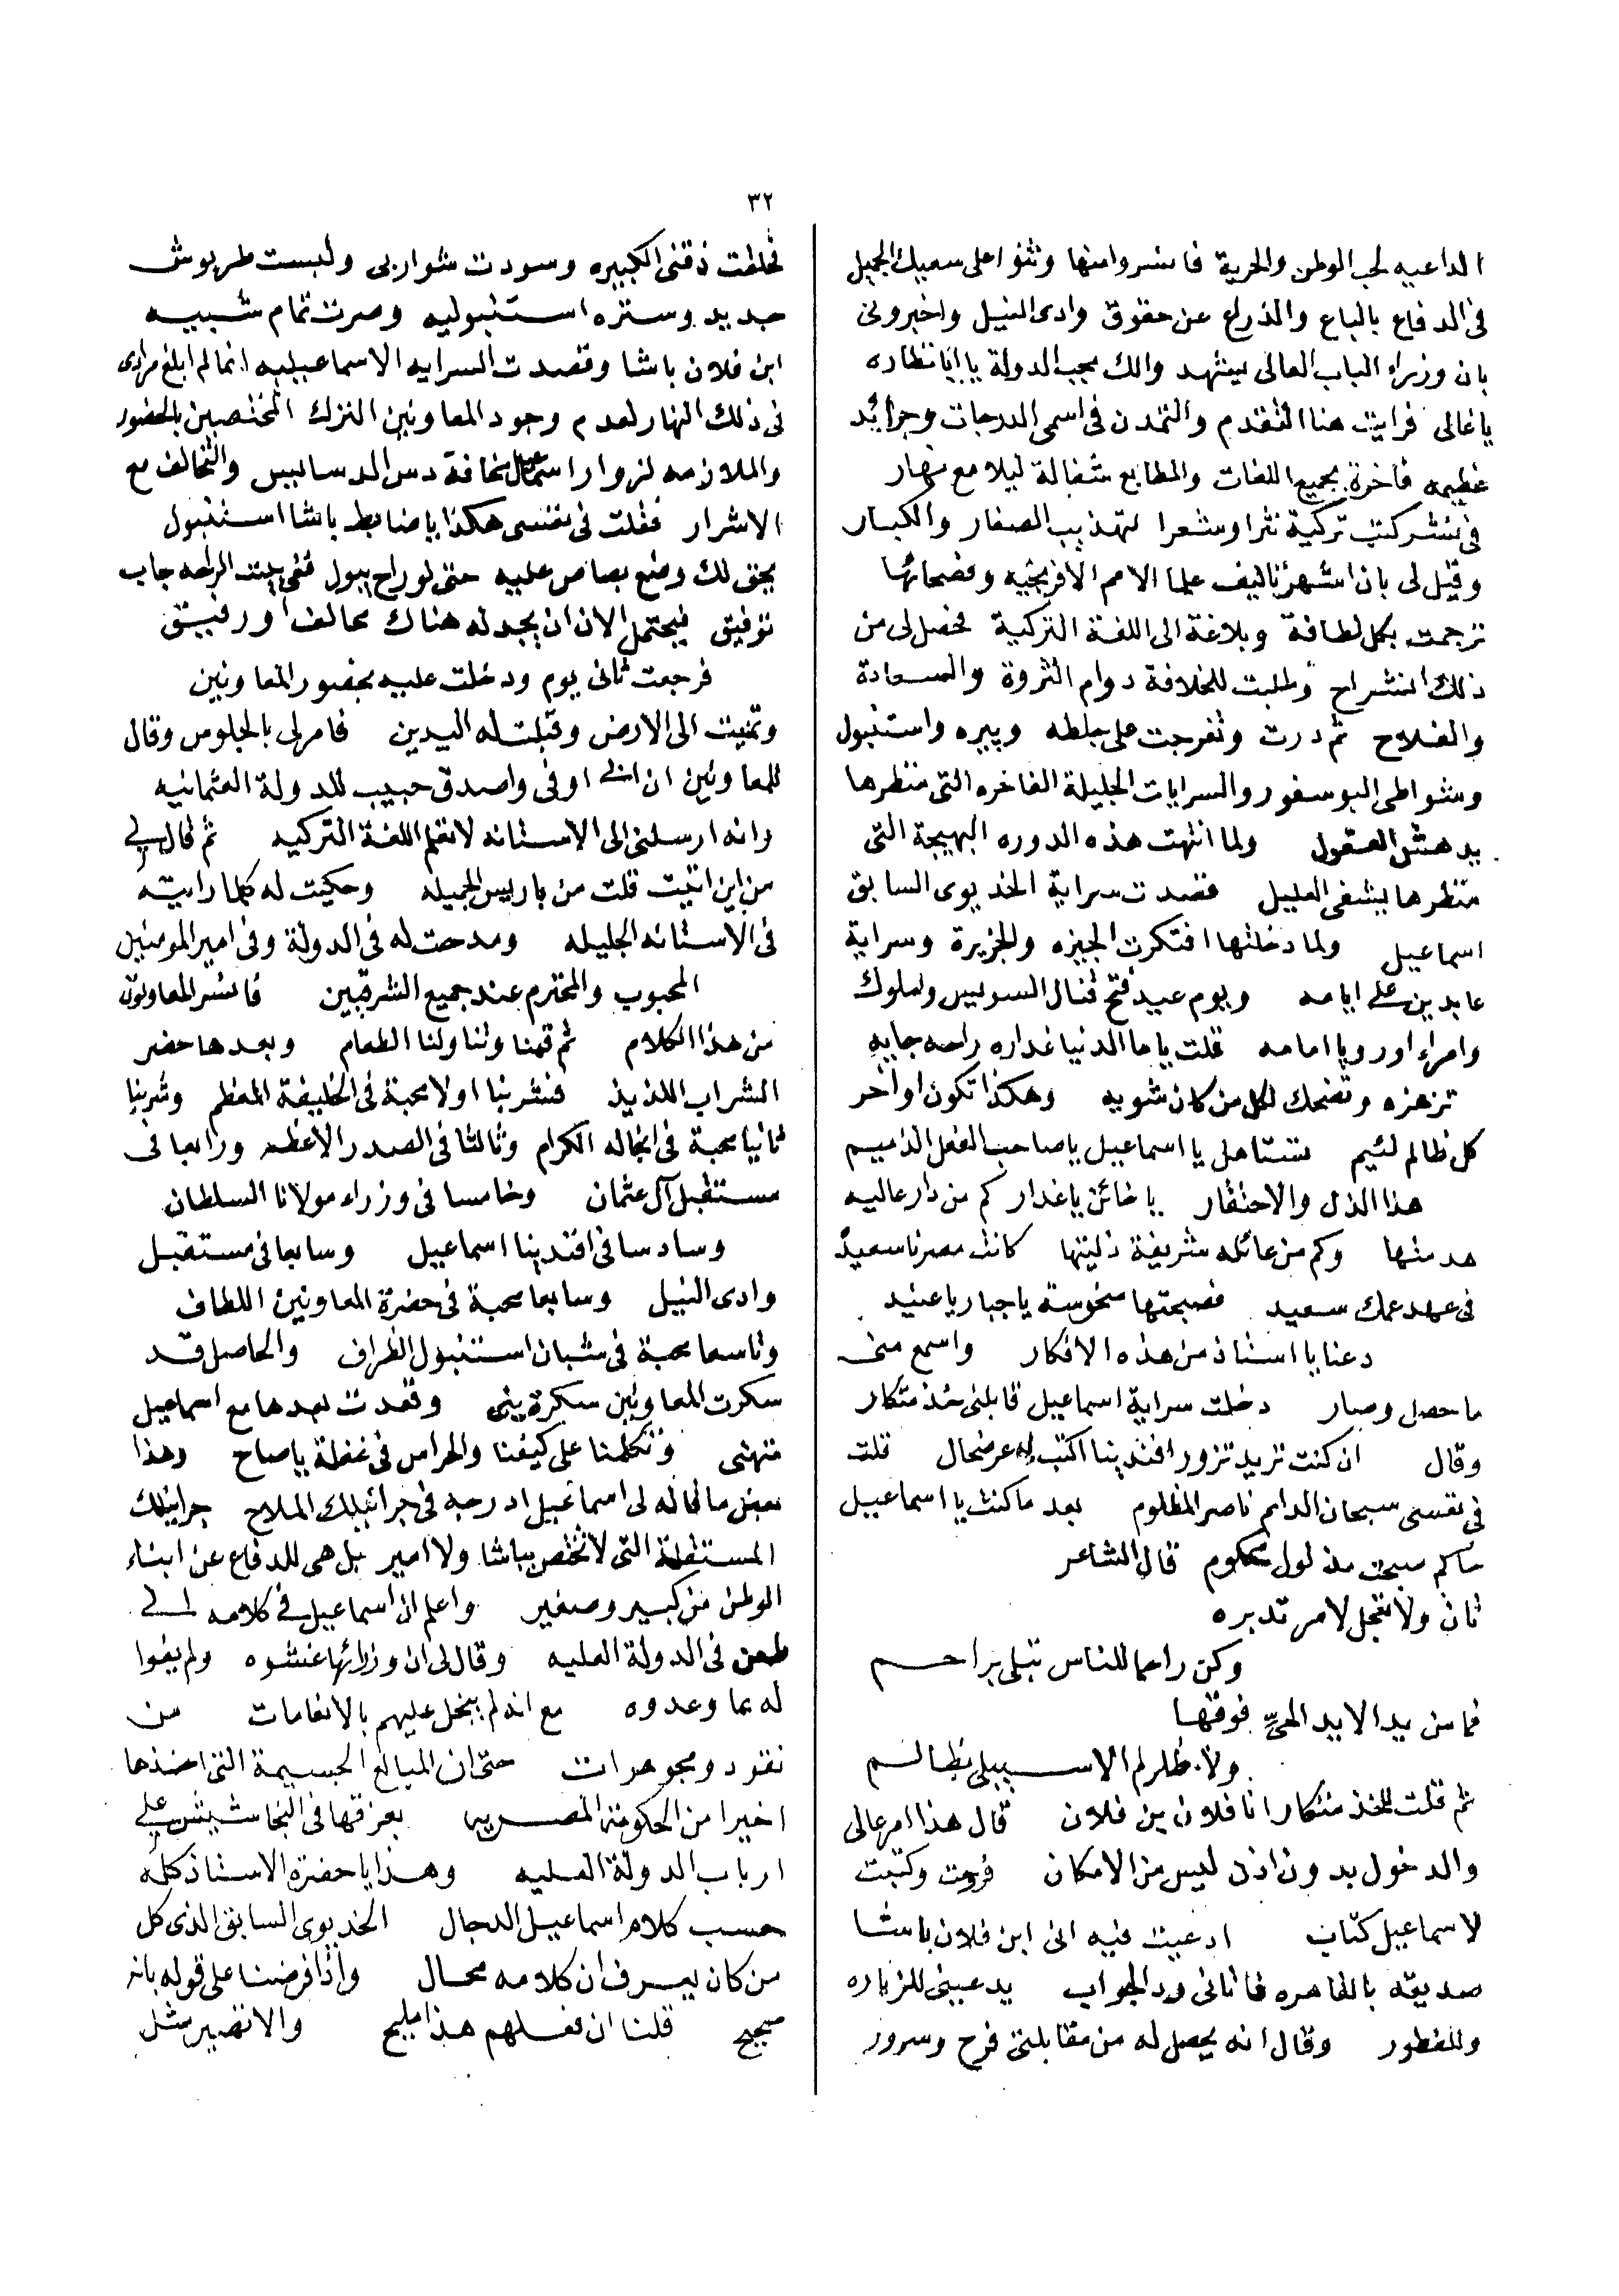 ٣٢
الداعيه لحب الوطن والحرية فانسروا منها وثنوا على سعيك الجميل
فى الدفاع بالباع والذراع عن حقوق وادى النيل واخبرونى
بان وزراء الباب العالى بينتهد والك بحب الدولة يا ابا نظاره
يا غالى فرايت هنا التقدم والتمدن فى اسمى الدرجات وجرائد
عظيمه فاخرة بجميع اللغات والمطابع شغالة ليلا مع نهار
فى نشر كتب تركية نثرا وشعرا لتهذيب الصغار والكبار
وقيل لى بان اشهر تاليف علما الامم الافرنجيه وفصحائها
ترجمت بكل لطافة وبلاغة الى اللغة التركية فحصل لى من
ذلك انشراح وطلبت للخلافة دوام الثروة والسعادة
والفلاح ثم درت وتفرجت على جلطه وبيره واستنبول
وشواطى البوسفور والسرايات الجليلة الفاخره التى منظرها
يدهش العقول ولما انتهت هذه الدوره البهيجة التى
منظرها يشفى العليل قصدت سراية الخديوى السابق
اسماعيل ولما دخلتها افتكرت الجيزه والجزيرة وسراية
عابدين على ايامه ويوم عيد فتح قنال السويس وملوك
وامراء اوروپا امامه قلت ياما الدنيا غداره راحه جايه
تزهزه وتضحك لكل من كان شويه وهكذا تكون اواخر
كل ظالم لئيم تستاهل يا اسماعيل يا صاحب الفعل الذميم
هذا الذل والاحتقار يا خائن يا غدار كم من دار عاليه
هدمتها وكم من عائله شريفة ذليتها كانت مصرنا سعيدة
فى عهد عمك سعيد فصبحتها منحوسة يا جبار يا عنيد
دعنا يا استاذ من هذه الافكار واسمع منى
ما حصل وصار دخلت سراية اسماعيل قابلنى خذمتكار
وقال ان كنت تريد تزور افندينا اكتب له عرضحال قلت
فى نفسى سبحان الدايم ناصر المظلوم بعد ما كنت يا اسماعيل
حاكم صبحت مذلول محكوم قال الشاعر
تان ولا تعجل لامر تدبره
وكن راحما للناس تبلى براحم
فما من يد الا يد الحىّ فوقها
ولا ظالم الا سيبلى بظالم
ثم قلت للخذمتكار انا فلان بن فلان قال هذا امر عالى
والدخول بدون اذن ليس من الامكان فرحت وكتبت
لاسماعيل كتاب ادعيت فيه انى ابن فلان باشا
صديقه بالقاهره فاتانى رد الجواب يدعينى للزياره
وللفطور وقال انه يحصل له من مقابلتى فرح وسرور
فحلقت ذقنى الكبيره وسودت شواربى ولبست طربوش
جديد وستره استنبوليه وصرت تمام شبيه
ابن فلان باشا وقصدت السرايه الاسماعيليه انما لم ابلغ مرادى
فى ذلك النهار لعدم وجود المعاونين الترك المختصين بالحضور
والملازمه لزوار اسماعيل مخافة دس الدسايس والتحالف مع
الاشرار فقلت فى نفسى هكذا يا ضابط باشا استنبول
يحق لك وضع بصاص عليه حتى لو راح يبول ففى بيت الراحه جاب
توفيق فيحتمل الان ان يجد له هناك محالف او رفيق
فرجعت ثانى يوم ودخلت عليه بحضور المعاونين
وتمنيت الى الارض وقبلت له اليدين فامر لى بالجلوس وقال
للمعاونين ان ابى اوفى واصدق حبيب للدولة العثمانيه
وانه ارسلنى الى الاستانه لاتعلم اللغة التركيه ثم قال لى
من اين اتيت قلت من باريس الجميله وحكيت له كلما رايته
فى الاستانه الجليله ومدحت له فى الدولة وفى امير المومنين
المحبوب والمحترم عند جميع الشرقيين فانسر المعاونون
من هذا الكلام ثم قمنا وتناولنا الطعام وبعدها حضر
الشراب اللذيذ فشربنا اولا محبة فى الخليفة المعظم وشربنا
ثانيا محبة فى انجاله الكرام وثالثا فى الصدر الاعظم ورابعا فى
مستقبل آل عثمان وخامسا فى وزراء مولانا السلطان
وسادسا فى افندينا اسماعيل وسابعا فى مستقبل
وادى النيل وسابعا محبة فى حضرة المعاونين اللطاف
وتاسعا محبة فى شبان استنبول الظراف والحاصل قد
سكرت المعاونين سكرة ينى وقعدت بعدها مع اسماعيل
متهنى وتكلمنا على كيفنا والحراس فى غفلة يا صاح وهذا
بعض ما قاله لى اسماعيل ادرجه فى جرانيلك الملاح جرانيلك
المستقلة التى لا تختص بباشا ولا امير بل هى للدفاع عن ابناء
الوطن من كبير وصغير واعلم ان اسماعيل فى كلامه لى
طعن فى الدولة العليه وقال لى ان وزرائها غشوه ولم يفوا
له بما وعدوه مع انه لم يبخل عليهم بالانعامات من
نقود ومجوهرات حتى ان المبالغ الجسيمة التى اخذها
اخيرا من الحكومة المصريه بعزقها فى البخاشيش على
ارباب الدولة العليه وهذا يا حضرة الاستاذ كله
حسب كلام اسماعيل الدجال الخديوى السابق الذى كل
من كان يعرف ان كلامه محال واذا فرضنا على قوله بانه
صحيح قلنا ان فعلهم هذا مليح والا تصير مثل